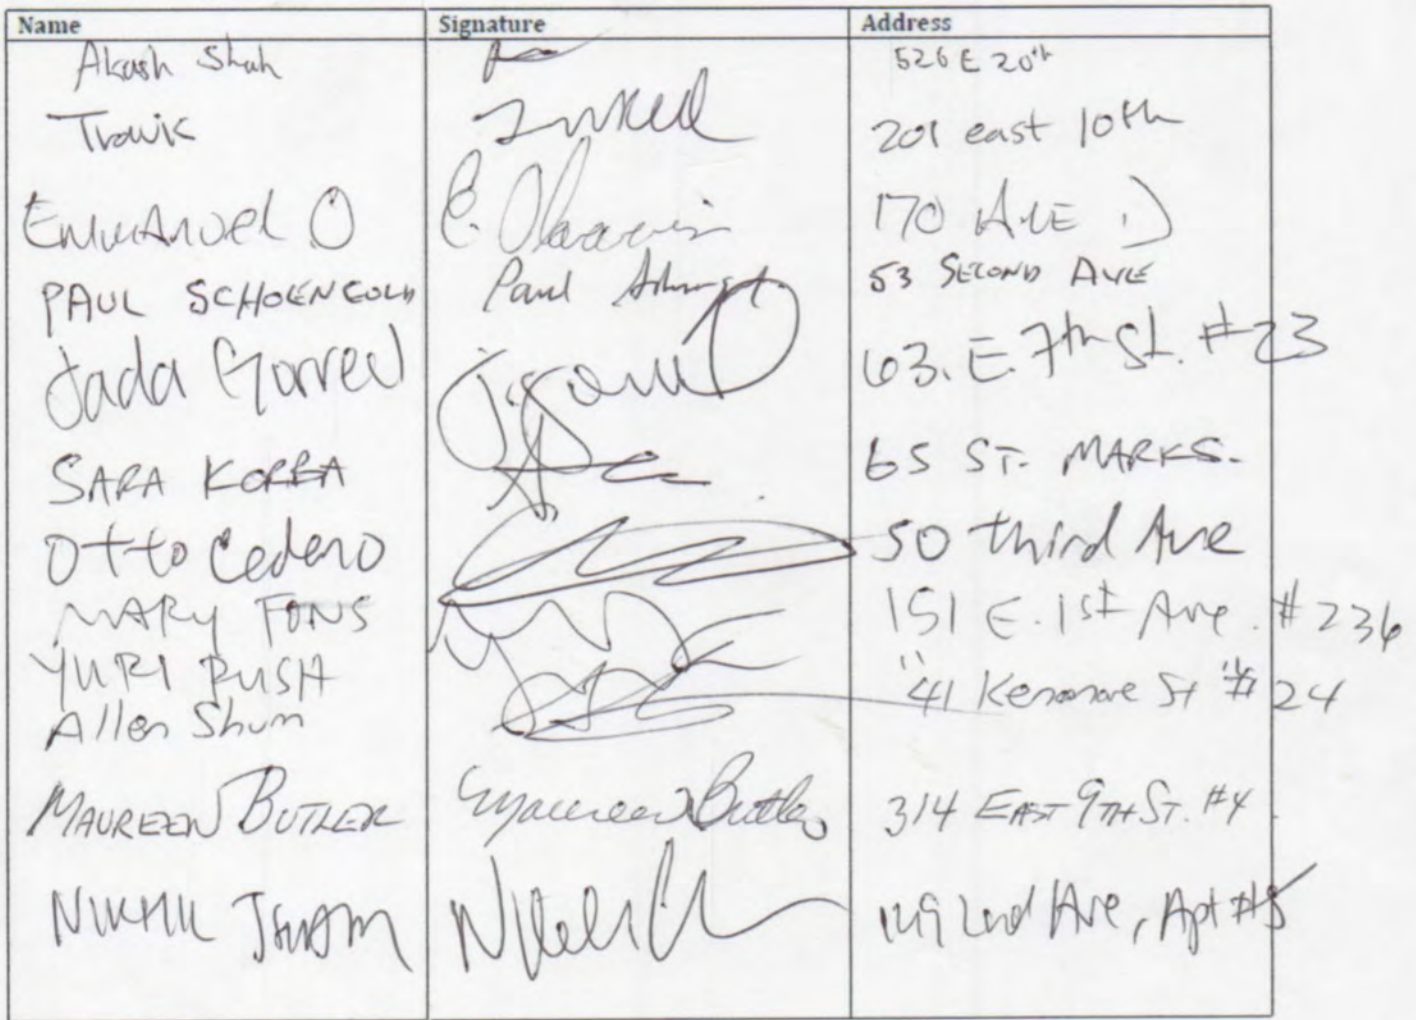 Name Signature Address
Akash Shah 526 E 20th
Trowik 201 east 10th
Emmanuel O E. 170 AVE
PAUL SCHOENGOLD Paul 53 SECOND AVE
Jada Gorred 63. E. 7th St. #23
SARA KOREA 65 ST. MARKS.
Otto Cedeno 50 third Ave
MARY FONS 151 E. 1st Ave. #236
YURI RUSH " "
Allen Shum 41 Kenmare St # 24
MAUREEN BUTLER Maureen Butler 314 EAST 9TH ST. #4
NIKHIL 149 2nd Ave, Apt #5